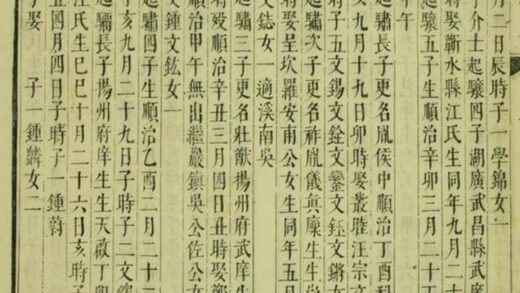 月二日辰時子一學錦女一
子介士起驤四子湖廣武昌縣武庠
時娶蘄水縣江氏生同年九月二十
起驤五子生順治辛卯三月二十
午
起驌長子更名胤侯中順治丁酉科
年九月十九日卯時娶叢睦汪宗文
時子五文錫文銓文鑾文鈺文鏘女
起驌次子更名祚胤儀真廩生生
時娶呈坎羅安南公女生同年五月
文鋕女一適溪南吳
起驌三子更名壯猷揚州府武庠生
時歿順治辛丑三月四日丑時娶鄭
順治甲午無出繼嚴鎮吳公佐公女
子文鍾文鈜女一
起驌四子生順治乙酉二月二十二
丁亥九月二十九日子時子二文欽
起騆長子揚州府庠生生天啟丁卯
江氏生己巳十月二十六日亥時子
五四月四日子時子一鍾蔚
子娶 子一鍾麟女二